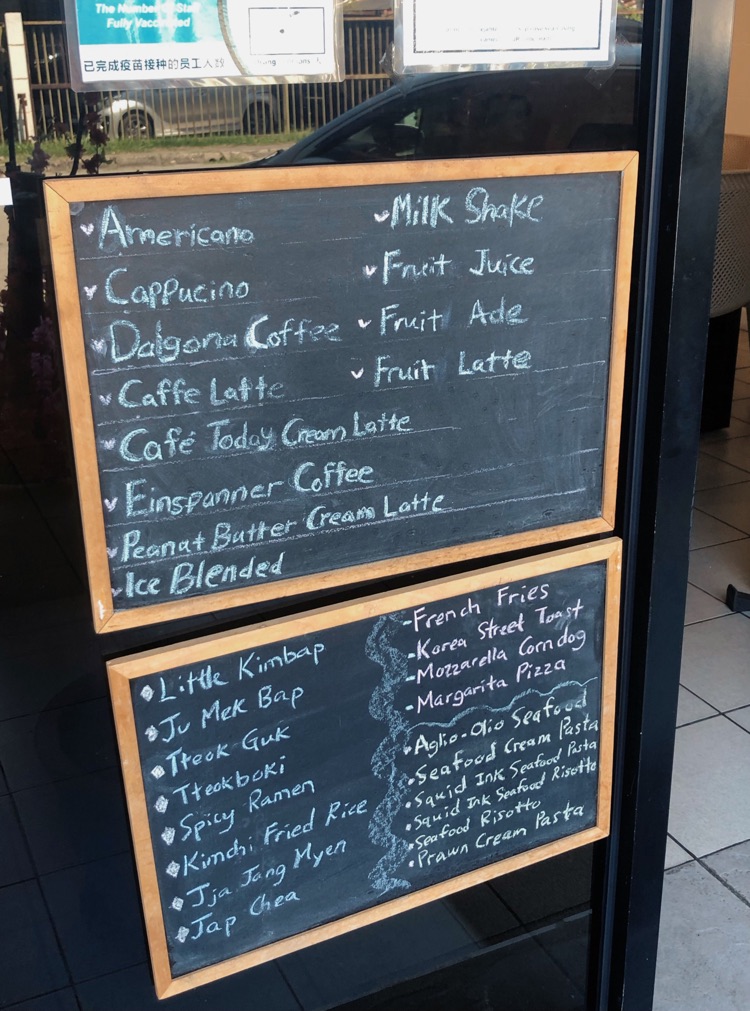 The Number Of Staff
Fully Vaccinated
已完成疫苗接种的员工人数
Americano
Cappucino
Dalgona Coffee
Caffe Latte
Café Today Cream Latte
Einspanner Coffee
Peanut Butter Cream Latte
Ice Blended
Milk Shake
Fruit Juice
Fruit Ade
Fruit Latte
Little Kimbap
Ju Mek Bap
Tteok Guk
Tteokboki
Spicy Ramen
Kimchi Fried Rice
Jja Jang Myen
Jap Chea
-French Fries
-Korea Street Toast
-Mozzarella Corndog
-Margarita Pizza
•Aglio-Olio Seafood
•Seafood Cream Pasta
•Squid Ink Seafood Pasta
•Squid Ink Seafood Risotto
•Seafood Risotto
•Prawn Cream Pasta